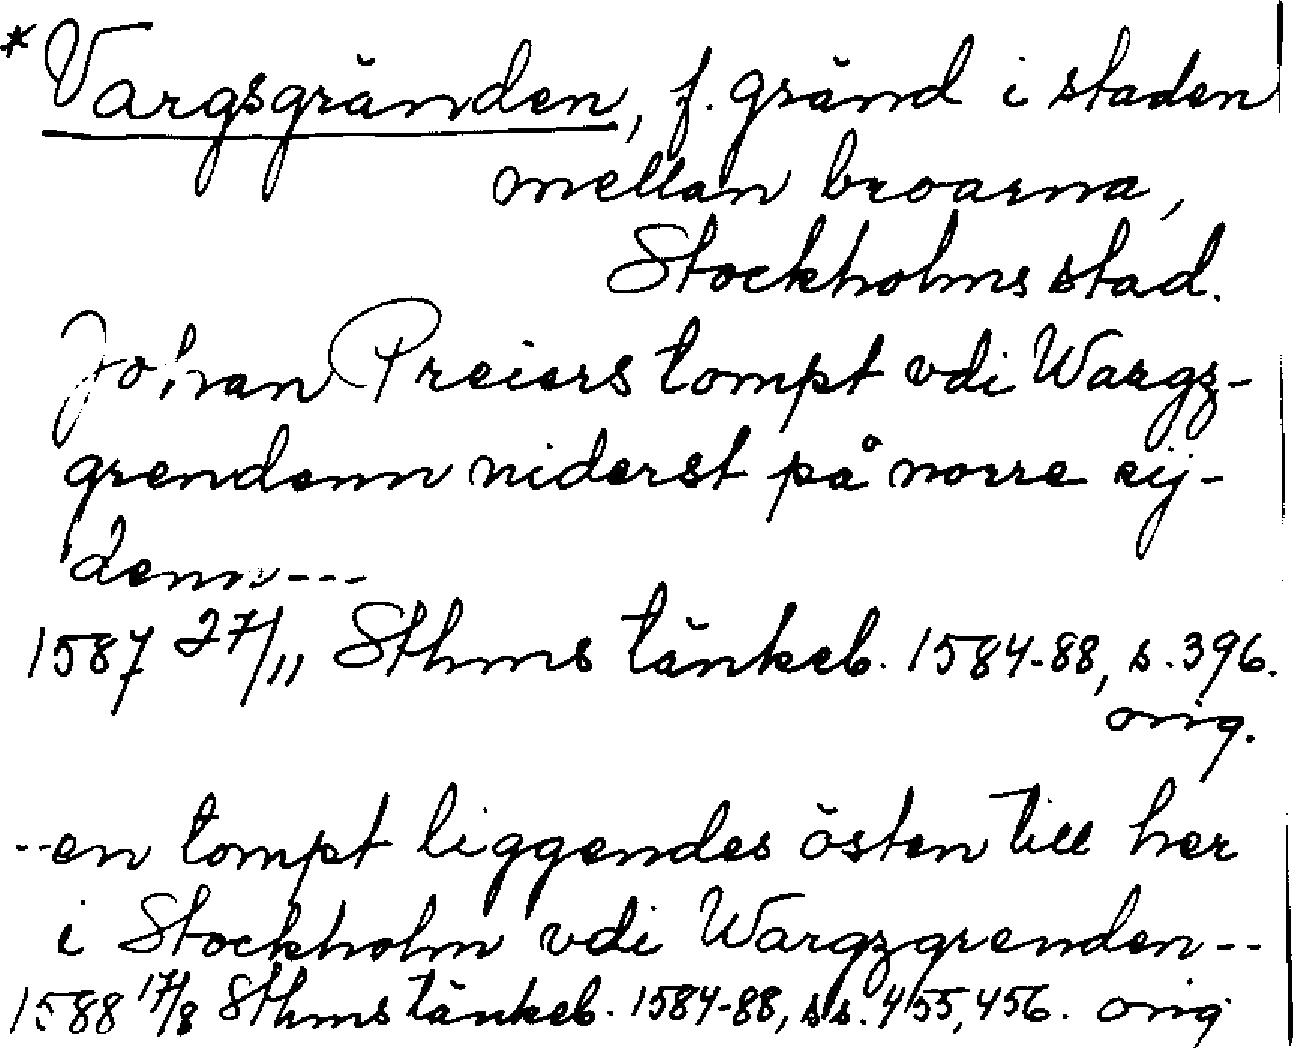 * Vargsgränden, f. gränd i staden
mellan broarna,
Stockholms stad.
Johan Preiers tompt vdi Wargz-
grendenn niderst på norre sij-
denn---
1587 27/11 Sthms tänkeb. 1584-88, s. 396.
orig.
--en tompt liggendes östen till her
i Stockholm vdi Wargzgrenden--
1588 17/8 Sthms tänkeb. 1584-88, ss. 455, 456. orig